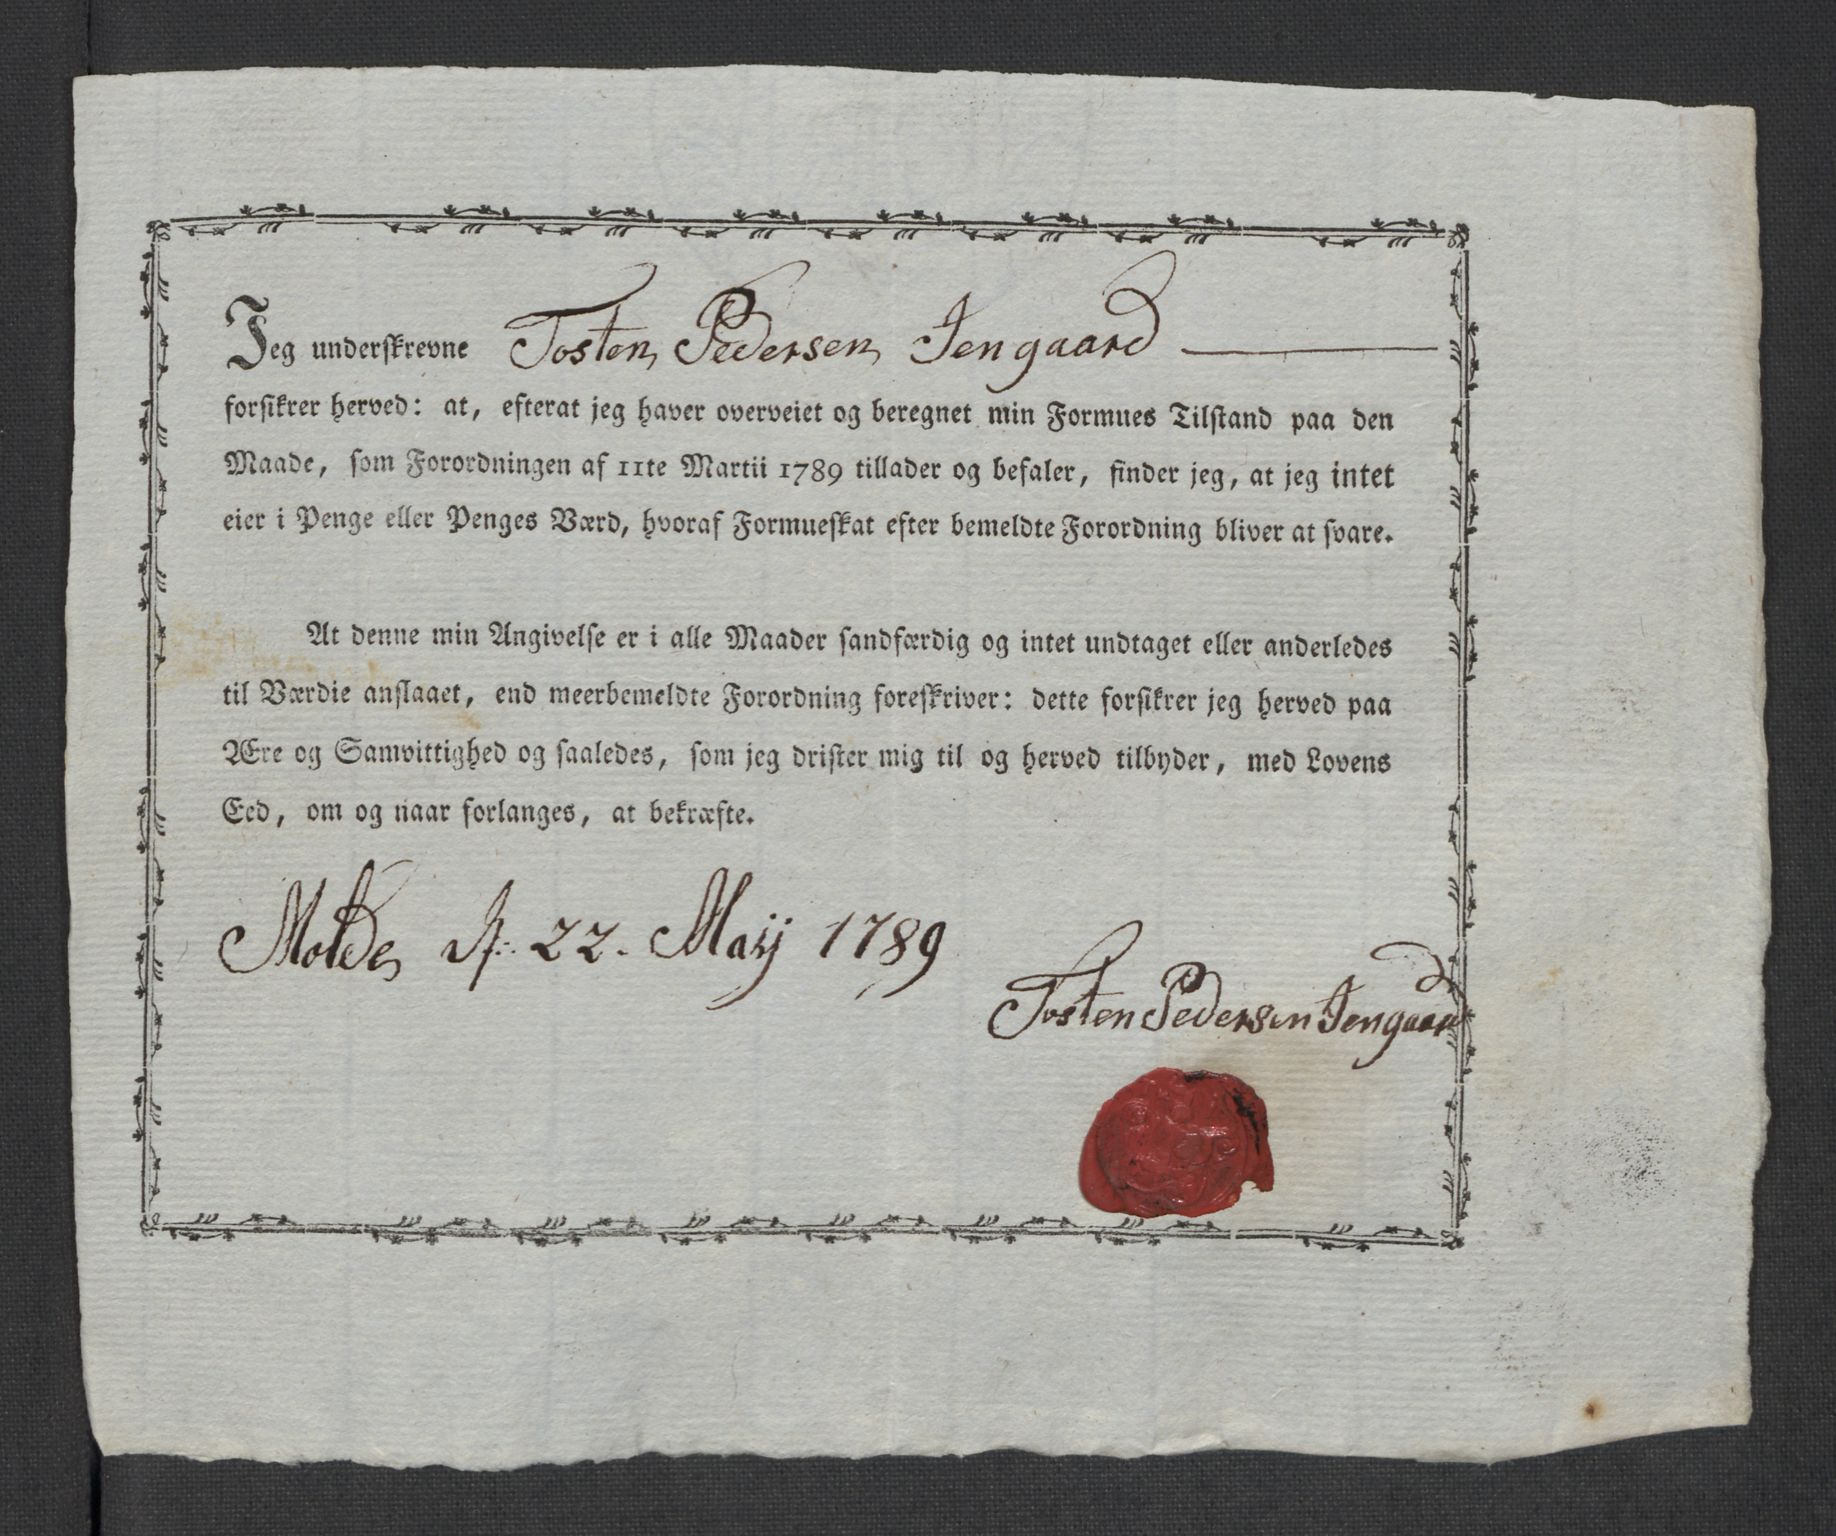 Jeg underskrevne Tosten Pedersen Jengaard
forsikrer herved: at, efterat jeg haver overveiet og beregnet min Formues Tilstand paa den
Maade, som Forordningen af 11te Martii 1789 tillader og befaler, finder jeg, at jeg intet
eier i Penge eller Penges Værd, hvoraf Formueskat efter bemeldte Forordning bliver at svare.
At denne min Angivelse er i alle Maader sandfærdig og intet undtaget eller anderledes
til Værdie anslaaet, end meerbemeldte Forordning foreskriver: dette forsikrer jeg herved paa
Ære og Samvittighed og saaledes, som jeg drister mig til og herved tilbyder, med Lovens
Eed, om og naar forlanges, at bekræfte.
Molde 22. Maij 1789
Tosten Pedersen Jengaard